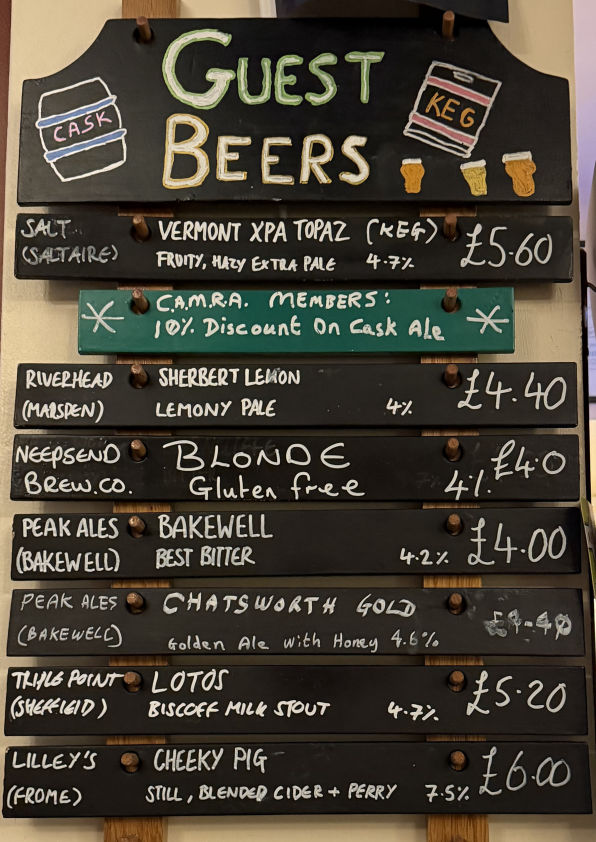 GUEST
BEERS
CASK
KEG
SALT VERMONT XPA TOPAZ (KEG) £5.60
(SALTAIRE) FRUITY, HAZY EXTRA PALE 4.7%
C.A.M.R.A. MEMBERS:
10% Discount On Cask Ale
RIVERHEAD SHERBERT LEMON £4.40
(MARSDEN) LEMONY PALE 4%
NEEPSEND BLONDE £4.0
BREW.CO. Gluten free 4%
PEAK ALES BAKEWELL £4.00
(BAKEWELL) BEST BITTER 4.2%
PEAK ALES CHATSWORTH GOLD
(BAKEWELL) Golden Ale with Honey 4.6%
TRIPLE POINT LOTOS £5.20
(SHEFFIELD) BISCOFF MILK STOUT 4.7%
LILLEY'S CHEEKY PIG £6.00
(FROME) STILL, BLENDED CIDER + PERRY 7.5%